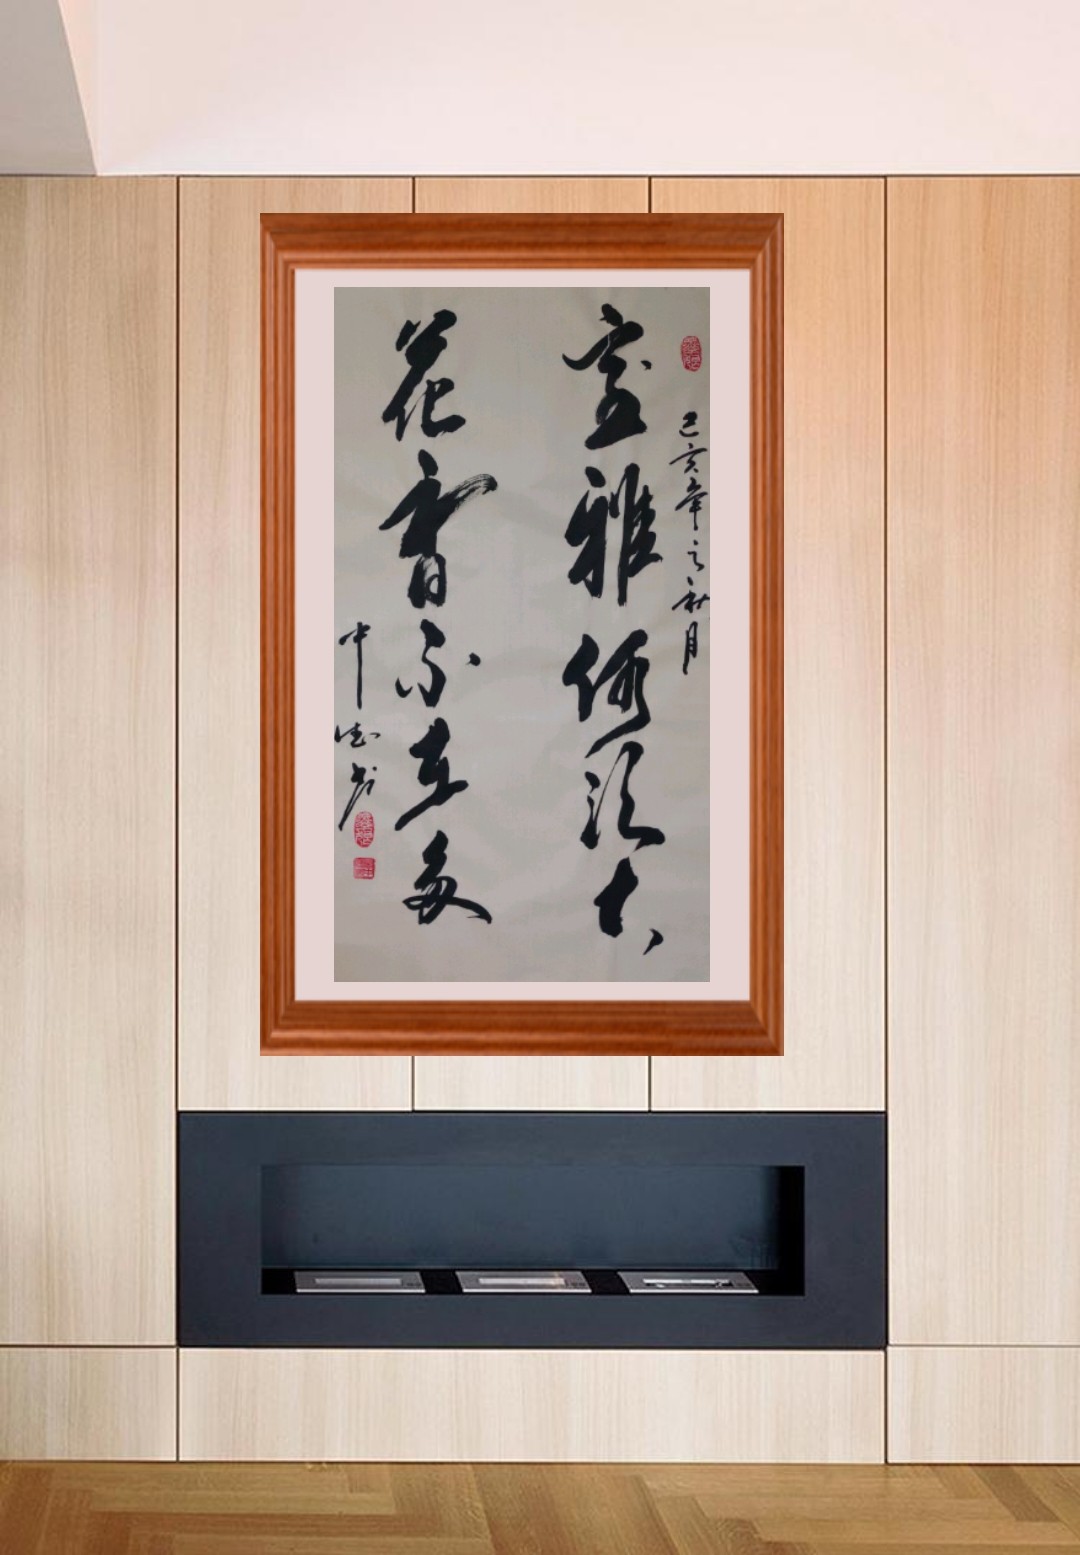 己亥年之秋月
室雅何须大
花香不在多
中志书